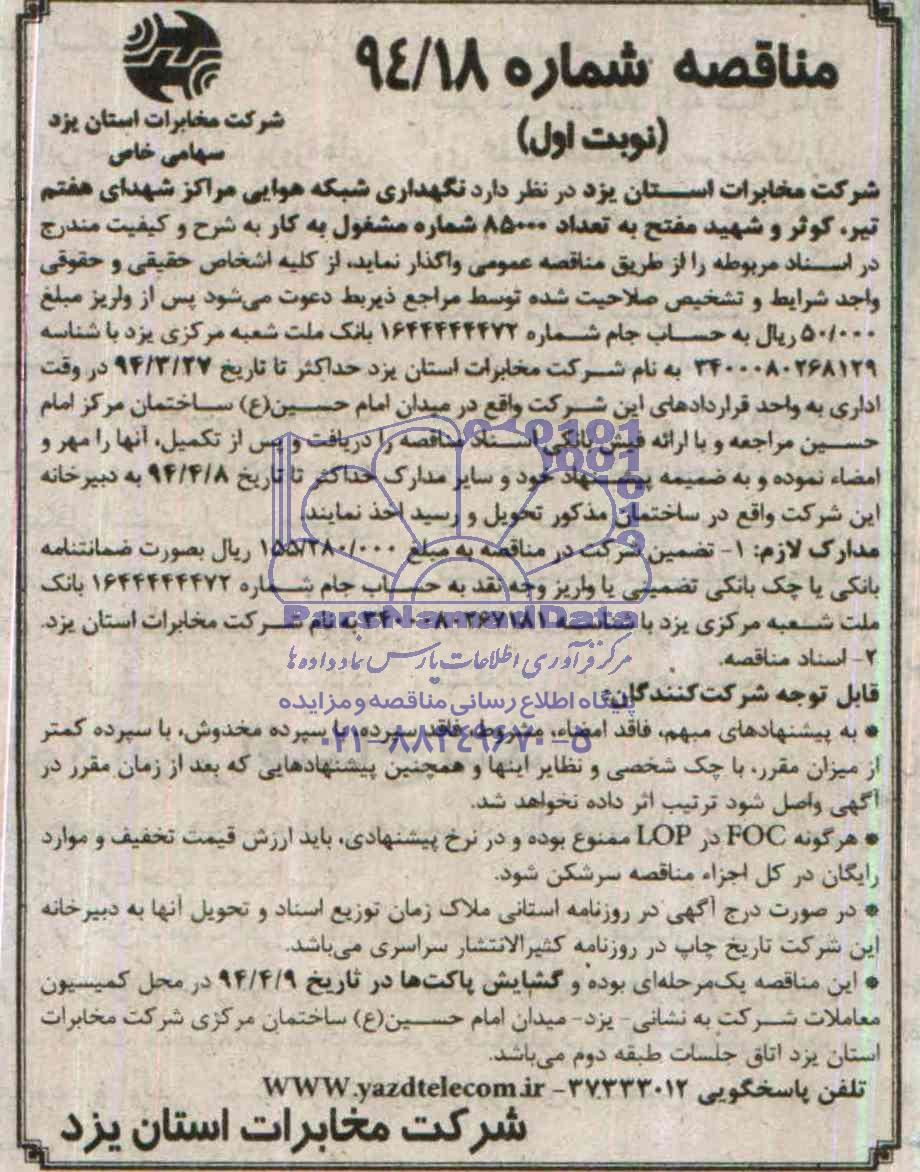 مناقصه شماره ۹٤/۱۸
(نوبت اول)
شرکت مخابرات استان یزد
سهامی خاص
شرکت مخابرات اســـتان یزد در نظر دارد نگهداری شبکه هوایی مراکز شهدای هفتم
تیر، کوثر و شهید مفتح به تعداد ۸۵۰۰۰ شماره مشغول به کار به شرح و کیفیت مندرج
در اســناد مربوطه را از طریق مناقصه عمومی واگذار نماید، از کلیه اشخاص حقیقی و حقوقی
واجد شرایط و تشخیص صلاحیت شده توسط مراجع ذیربط دعوت می‌شود پس از واریز مبلغ
۵۰/۰۰۰ ریال به حساب جام شماره ۱۶۴۴۴۴۴۴۷۲ بانک ملت شعبه مرکزی یزد با شناسه
۳۴۰۰۰۸۰۲۶۸۱۲۹ به نام شــرکت مخابرات استان یزد حداکثر تا تاریخ ۹۴/۳/۲۷ در وقت
اداری به واحد قراردادهای این شــرکت واقع در میدان امام حسـین(ع) ساختمان مرکز امام
حسین مراجعه و با ارائه فیش بانکی اسناد مناقصه را دریافت و پس از تکمیل، آنها را مهر و
امضاء نموده و به ضمیمه پیشنهاد خود و سایر مدارک حداکثر تا تاریخ ۹۴/۴/۸ به دبیرخانه
این شرکت واقع در ساختمان مذکور تحویل و رسید اخذ نمایند.
مدارک لازم: ۱- تضمین شرکت در مناقصه به مبلغ ۱۵۵/۲۸۰/۰۰۰ ریال بصورت ضمانتنامه
بانکی یا چک بانکی تضمینی یا واریز وجه نقد به حساب جام شماره ۱۶۴۴۴۴۴۴۷۲ بانک
ملت شعبه مرکزی یزد با شناسه ۳۴۰۰۰۸۰۲۶۷۱۸۱ به نام شــرکت مخابرات استان یزد.
۲- اسناد مناقصه.
قابل توجه شرکت‌کنندگان:
● به پیشنهادهای مبهم، فاقد امضاء، مشروط، فاقد سپرده، با سپرده مخدوش، با سپرده کمتر
از میزان مقرر، با چک شخصی و نظایر اینها و همچنین پیشنهادهایی که بعد از زمان مقرر در
آگهی واصل شود ترتیب اثر داده نخواهد شد.
● هرگونه FOC در LOP ممنوع بوده و در نرخ پیشنهادی، باید ارزش قیمت تخفیف و موارد
رایگان در کل اجزاء مناقصه سرشکن شود.
● در صورت درج آگهی در روزنامه استانی ملاک زمان توزیع اسناد و تحویل آنها به دبیرخانه
این شرکت تاریخ چاپ در روزنامه کثیرالانتشار سراسری می‌باشد.
● این مناقصه یک‌مرحله‌ای بوده و گشایش پاکت‌ها در تاریخ ۹۴/۴/۹ در محل کمیسیون
معاملات شــرکت به نشانی- یزد- میدان امام حســین(ع) ساختمان مرکزی شرکت مخابرات
استان یزد اتاق جلسات طبقه دوم می‌باشد.
تلفن پاسخگویی ۳۷۳۳۳۰۱۲- WWW.yazdtelecom.ir
شرکت مخابرات استان یزد
ParsNamadData
مرکز فرآوری اطلاعات پارس نماد داده ها
پایگاه اطلاع رسانی مناقصه و مزایده
۰۲۱-۸۸۳٤۹٦۷۰-۵